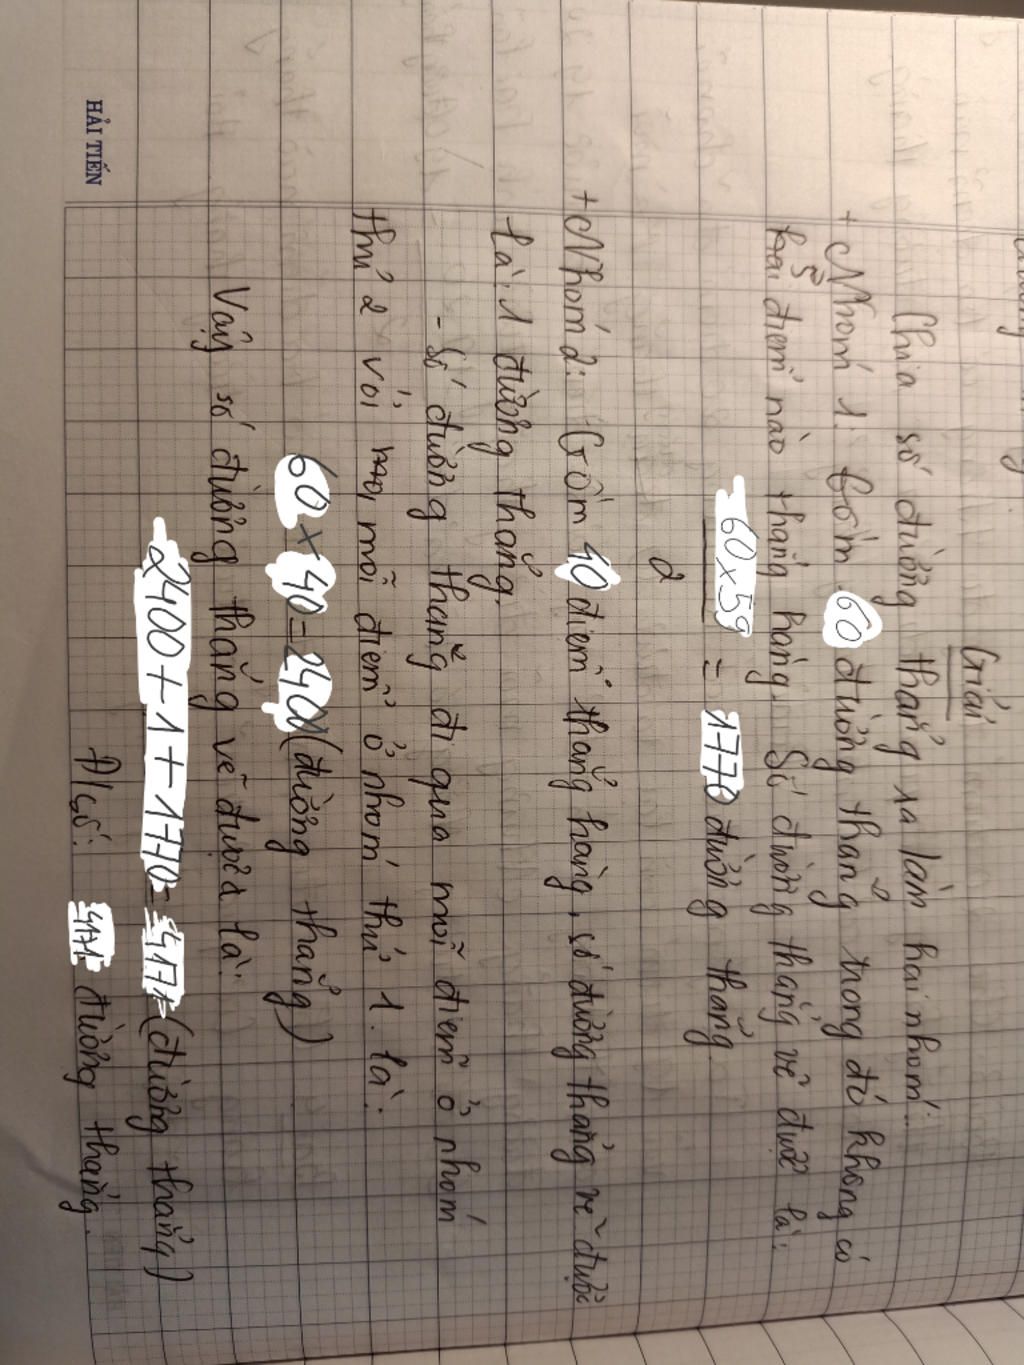 Giải
Chia số đường thẳng ra làm hai nhóm:
+ Nhóm 1: Gồm 60 đường thẳng trong đó không có
3 điểm nào thẳng hàng. Số đường thẳng vẽ được là:
60 x 59 = 1770 đường thẳng
2
+ Nhóm 2: Gồm 40 điểm thẳng hàng, số đường thẳng vẽ được
là: 1 đường thẳng.
- Số đường thẳng đi qua mỗi điểm ở nhóm
thứ 2 với mỗi điểm ở nhóm thứ 1. là:
60 x 40 = 2400 (đường thẳng)
Vậy số đường thẳng vẽ được là:
2400 + 1 + 1770 = 4171 (đường thẳng)
Đ/số: đường thẳng.
HẢI TIẾN